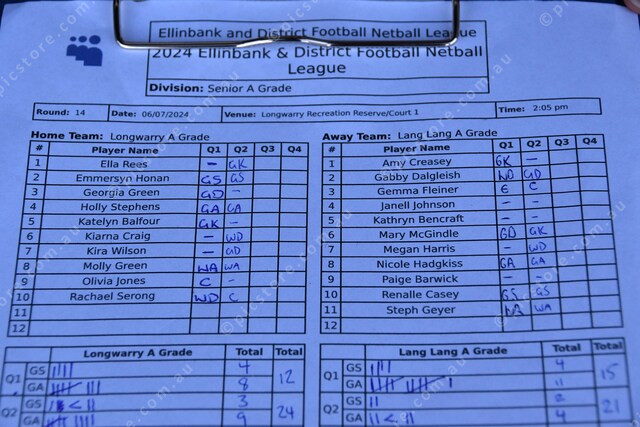 Ellinbank and District Football Netball League
2024 Ellinbank & District Football Netball
League
Division: Senior A Grade
Round: 14 Date: 06/07/2024 Venue: Longwarry Recreation Reserve/Court 1 Time: 2:05 pm
Home Team: Longwarry A Grade
# Player Name Q1 Q2 Q3 Q4
1 Ella Rees – GK
2 Emmersyn Honan GS GS
3 Georgia Green GD –
4 Holly Stephens GA GA
5 Katelyn Balfour GK –
6 Kiarna Craig – WD
7 Kira Wilson – GD
8 Molly Green WA WA
9 Olivia Jones C –
10 Rachael Serong WD C
11
12
Away Team: Lang Lang A Grade
# Player Name Q1 Q2 Q3 Q4
1 Amy Creasey GK –
2 Gabby Dalgleish WD GD
3 Gemma Fleiner C C
4 Janell Johnson – –
5 Kathryn Bencraft – –
6 Mary McGindle GD GK
7 Megan Harris – WD
8 Nicole Hadgkiss GA GA
9 Paige Barwick – –
10 Renalle Casey GS GS
11 Steph Geyer WA WA
12
Longwarry A Grade Total Total
Q1 GS 4 12
GA 8
Q2 GS 3 24
GA 9
Lang Lang A Grade Total Total
Q1 GS 4 15
GA 11
Q2 GS 2 21
GA 4